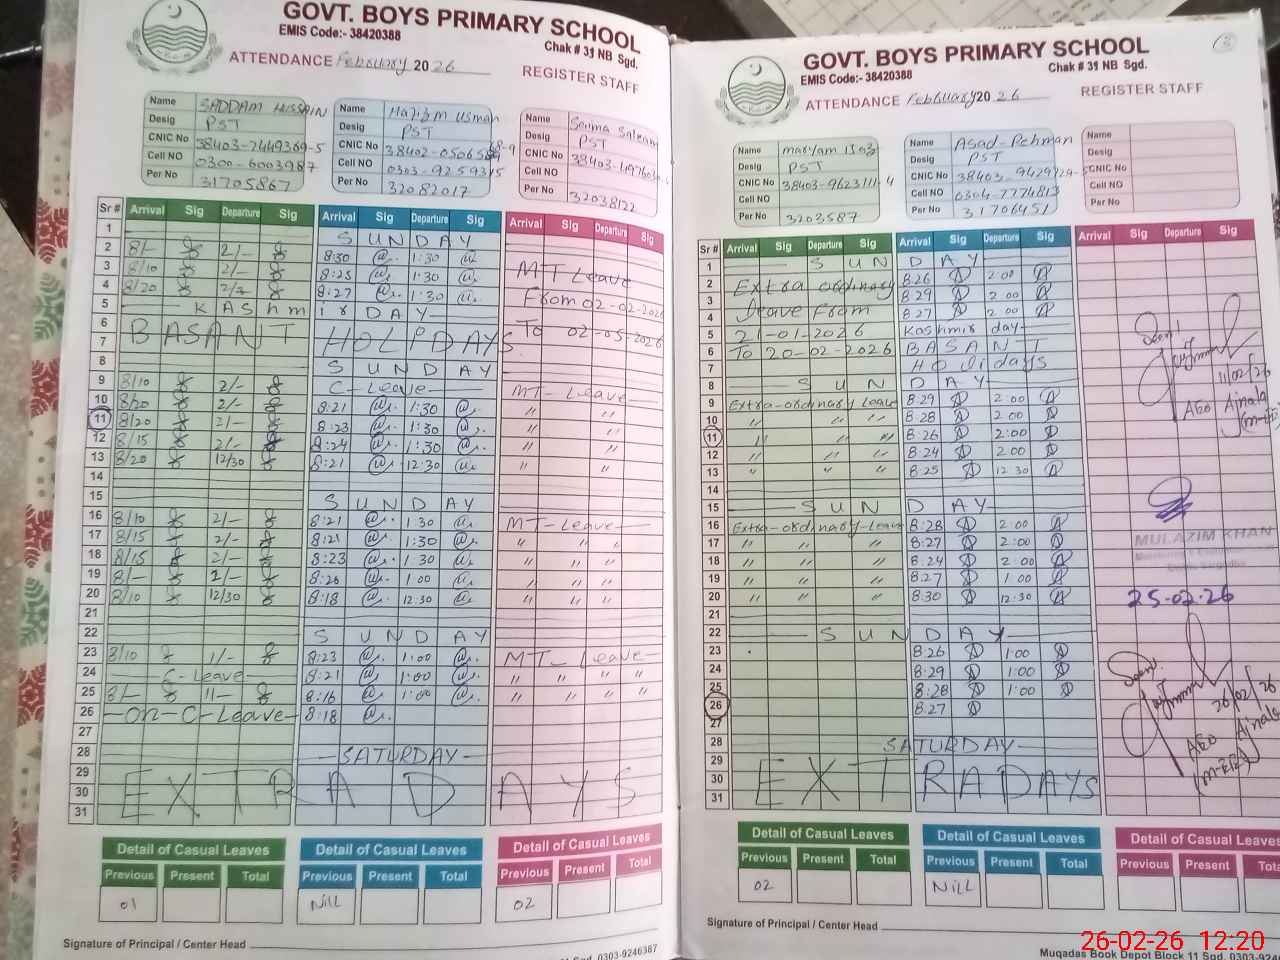 GOVT. BOYS PRIMARY SCHOOL
EMIS Code:- 38420388
Chak # 31 NB Sgd.
ATTENDANCE February 2026
REGISTER STAFF
Name SADDAM HUSSAIN
Desig PST
CNIC No 38403-7449369-5
Cell NO 0300-6003987
Per No 31705867
Name Hazibm Usman
Desig PST
CNIC No
Cell NO 0303-9259315
Per No 32082017
Name Saima Saleem
Desig PST
CNIC No
Cell NO
Per No 32038122
Sr # Arrival Sig Departure Sig Arrival Sig Departure Sig Arrival Sig Departure Sig
1 SUNDAY
2 8/- 2/- 8:30 1:30 MT Leave
3 8/10 2/- 8:25 1:30
4 8/20 2/- 8:27 1:30 From 02-02-2026
5 KAShmir DAY
6 To 02-05-2026
7 BASANT HOLIDAYS
8 SUNDAY
9 8/10 2/- C-Leave MT-Leave
10 8/20 2/- 8:21 1:30 " "
11 8/20 2/- 8:23 1:30 " "
12 8/15 2/- 8:24 1:30 " "
13 8/20 12/30 8:21 12:30 " "
14
15 SUNDAY
16 8/10 2/- 8:21 1:30 MT-Leave
17 8/15 2/- 8:21 1:30 " "
18 8/15 2/- 8:23 1:30 " "
19 8/- 2/- 8:20 1:00 " "
20 8/10 12/30 8:18 12:30 " "
21
22 SUNDAY
23 8/10 1/- 8:23 1:00 MT-Leave
24 C-Leave 8:21 1:00 " "
25 8/- 11- 8:16 1:00 " "
26 -on-C-Leave- 8:18
27
28 SATURDAY
29
30 EXTRA DAYS
31
Detail of Casual Leaves Detail of Casual Leaves Detail of Casual Leaves
Previous Present Total Previous Present Total Previous Present Total
01 NiLL 02
Signature of Principal / Center Head
Sgd. 0303-9246387
GOVT. BOYS PRIMARY SCHOOL
EMIS Code:- 38420388
Chak # 31 NB Sgd.
ATTENDANCE February 2026
REGISTER STAFF
Name maryam
Desig PST
CNIC No 38403-9623111-4
Cell NO
Per No 3203587
Name Asad-Rehman
Desig PST
CNIC No
Cell NO 0304-7774813
Per No 31706451
Name
Desig
CNIC No
Cell NO
Per No
Sr # Arrival Sig Departure Sig Arrival Sig Departure Sig Arrival Sig Departure Sig
1 SUNDAY
2 Extra ordinary 8:26 2:00
3 Leave From 8:29 2:00
4 8:27 2:00
5 21-01-2026 Kashmir day
6 To 20-02-2026 BASANT
7 Holidays
8 SUNDAY
9 Extra-ordinary Leave 8:29 2:00
10 " " " 8:28 2:00
11 " " " 8:26 2:00
12 " " " 8:24 2:00
13 " " " 8:25 12:30
14
15 SUNDAY
16 Extra-ordinary-Leave 8:28 2:00
17 " " " 8:27 2:00
18 " " " 8:24 2:00
19 " " " 8:27 1:00
20 " " " 8:30 12:30
21
22 SUNDAY
23 8:26 1:00
24 8:29 1:00
25 8:28 1:00
26 8:27
27
28 SATURDAY
29
30 EXTRADAYS
31
Seen
11/02/26
AEO Ajnala
MULAZIM KHAN
25-02-26
Seen
26/02/26
AEO Ajnala
Detail of Casual Leaves Detail of Casual Leaves Detail of Casual Leaves
Previous Present Total Previous Present Total Previous Present
02 NiLL
Signature of Principal / Center Head
Muqadas Book Depot Block 11 Sgd. 0303-9246
26-02-26 12:20